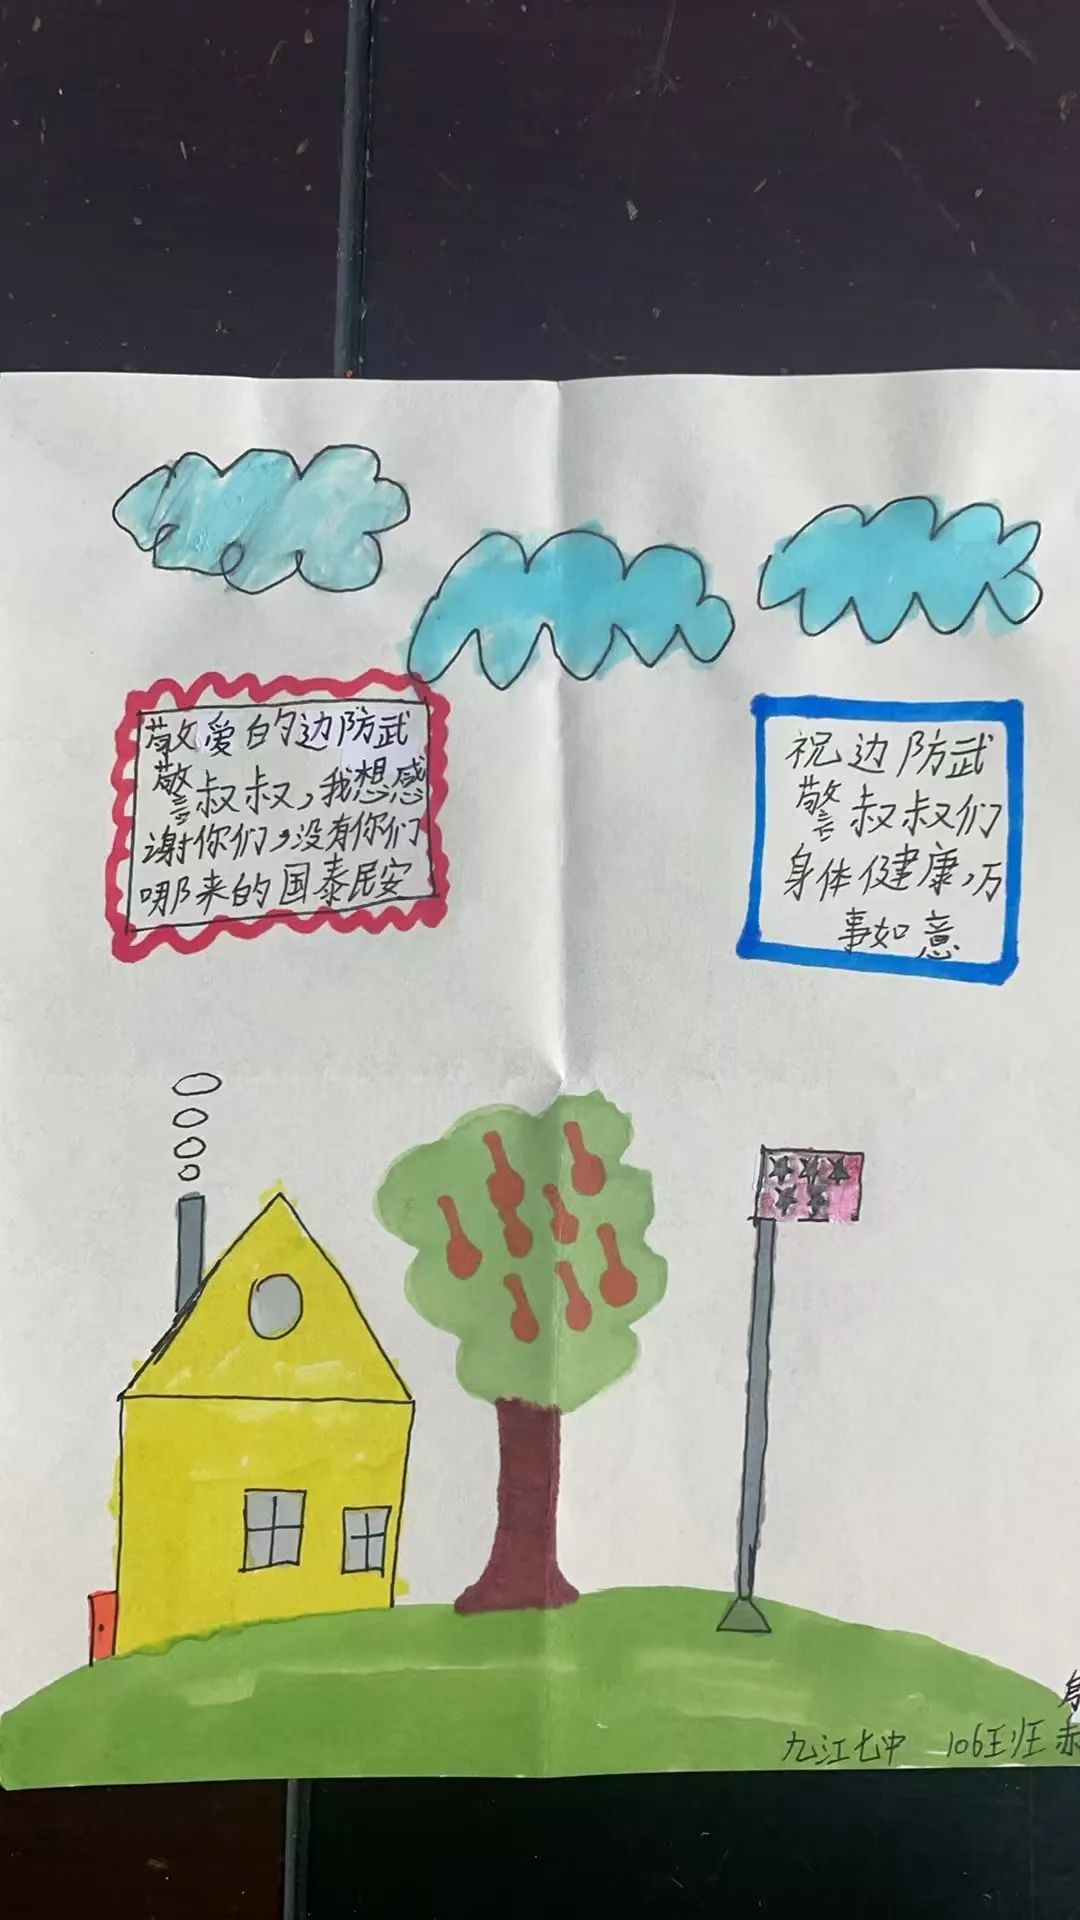 敬爱的边防武
警叔叔，我想感
谢你们，没有你们
哪来的国泰民安
祝边防武
警叔叔们
身体健康，万
事如意
九江七中 106班